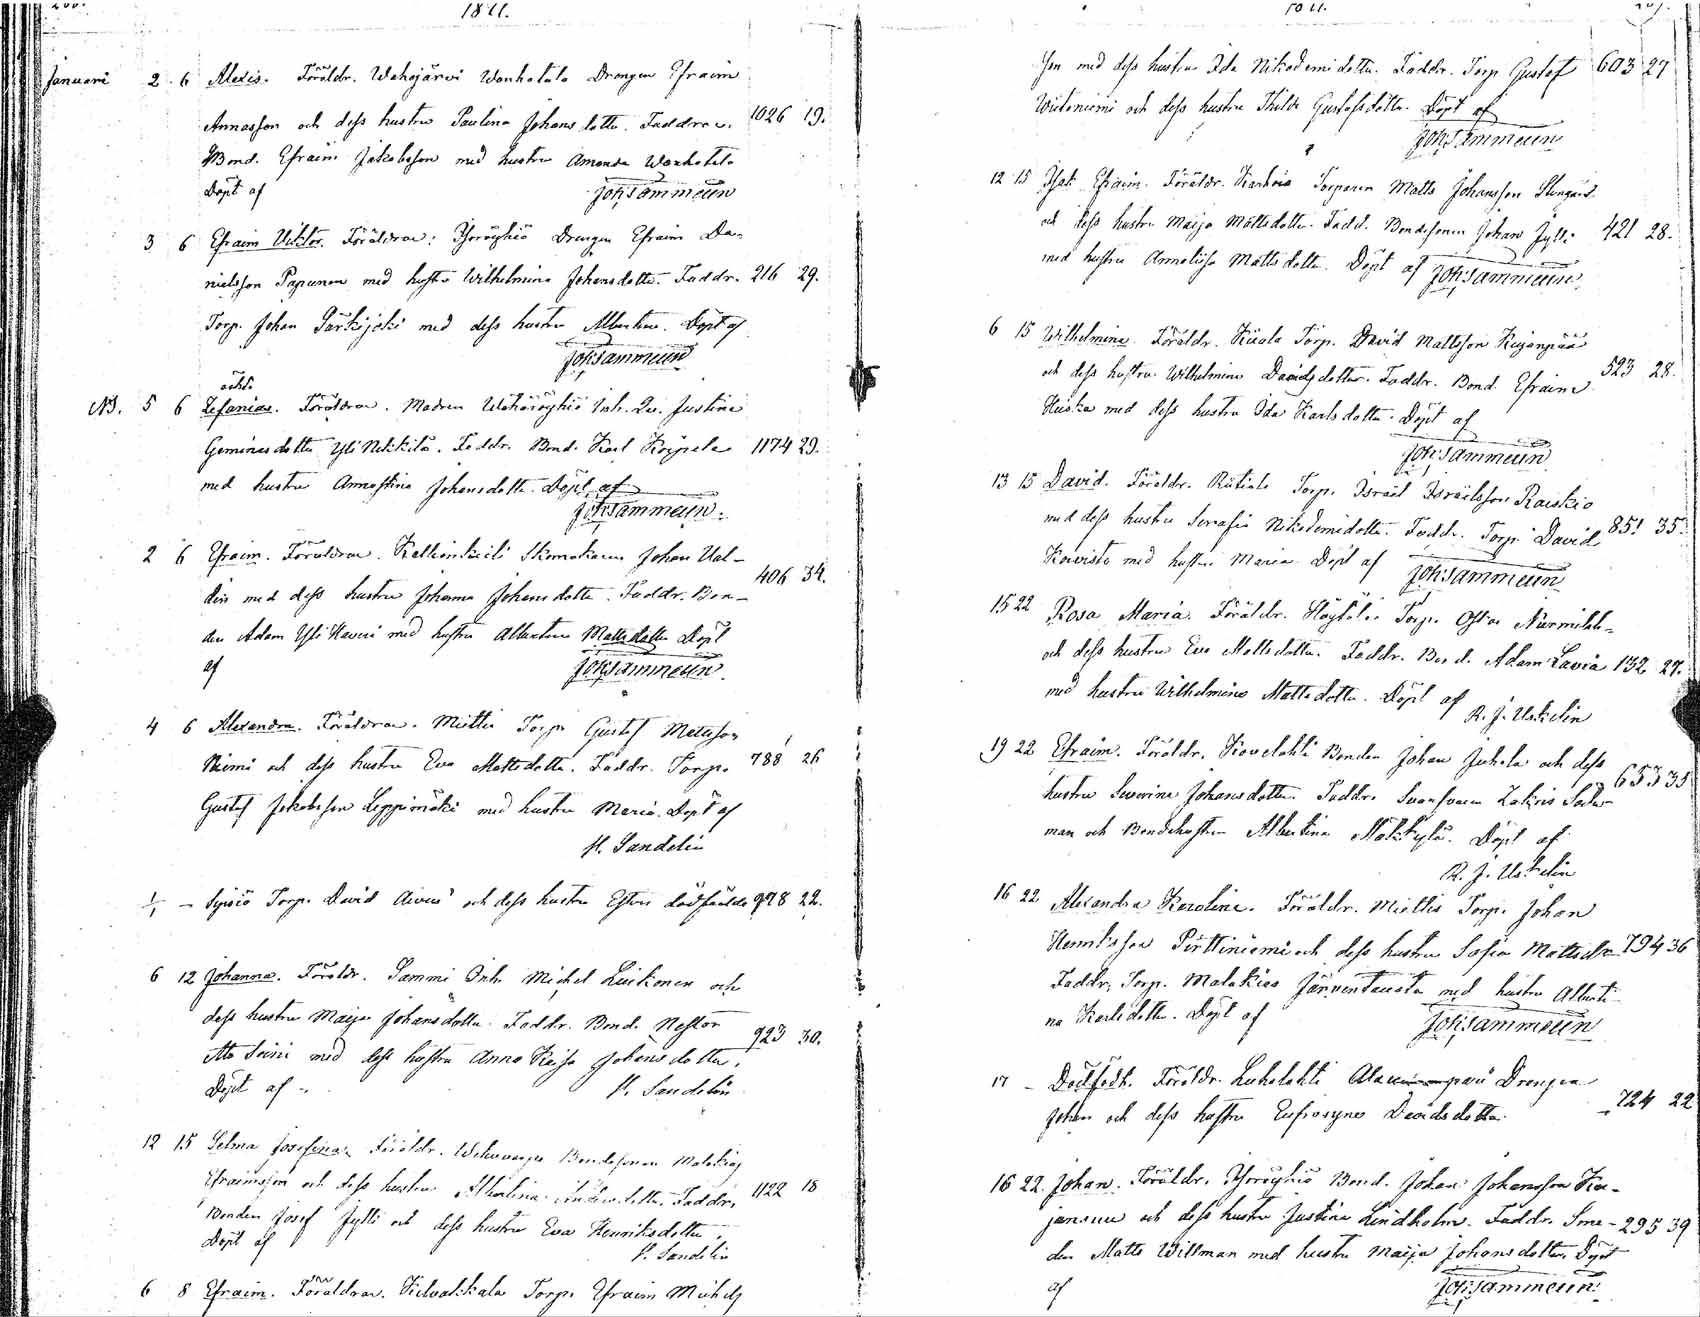 1811.
Januari 2 6 Alexis. Föräldr. Wahojärvi Wanhatalo Drengen Efraim
Annasson och dess hustru Paulina Johansdotter. Faddrar. 1026 19.
Bond. Efraim Jakobsson med hustru Amanda Wanhatalo
Döpt af Joh. Sammeun
3 6 Efraim Viktor. Föräldrar: Drengen Efraim Da-
nielsson Papunen med hustru Wilhelmina Johansdotter. Faddr. 216 29.
Torp. Johan Särkijoki med dess hustru Albertina. Döpt af
Joh. Sammeun
äckta
NB. 5 6 Zefanias. Föräldrar. Modren Inh. Justina
Geminusdotter Yli Nikkilä. Faddr. Bond. Karl Korpela 1174 29.
med hustru Annastina Johansdotter. Döpt af
Joh. Sammeun.
2 6 Efraim. Föräldrar. Skomakaren Johan Val-
din med dess hustru Johanna Johansdotter. Faddr. Bon- 406 34.
den Adam Yli Kaveri med hustru Albertina Mattsdotter Döpt
af Joh. Sammeun.
4 6 Alexandra. Föräldrar. Miettis Torp. Gustaf Mattsson
Niemi och dess hustru Eva Mattsdotter. Faddr. Torp. 788 26
Gustaf Jakobsson Leppimäki med hustru Maria. Döpt af
H. Sandelin
1/1 – Torp. David och dess hustru Esters dödfödde 978 22.
6 12 Johanna. Föräldr. Sammi Inh. Michel Leikonen och
dess hustru Maija Johansdotter. Faddr. Bond. Nestor
Ala Seini med dess hustru Anna Kaisa Johansdotter. 923 30.
Döpt af H. Sandelin
12 15 Selma Josefina. Föräldr. Bondesonen Malakias
Efraimsson och dess hustru Albertina Faddr. 1122 18
Bonden Josef Jylli och dess hustru Eva Henriksdotter.
Döpt af H. Sandelin
6 8 Efraim. Föräldrar. Kilvakkala Torp. Efraim Mickels
son med dess hustru Ida Nikodemidotter. Faddr. Torp Gustaf 603 27
Wuteniemi och dess hustru Thilda Gustafsdotter. Döpt af
Joh. Sammeun
12 15 Isak Efraim. Föräldr. Karhois Torparen Matts Johansson
och dess hustru Maija Mattsdotter. Fadd. Bondesonen Johan Jylli 421 28.
med hustru Annaliisa Mattsdotter. Döpt af Joh. Sammeun.
6 15 Wilhelmina. Föräldr. Torp. David Mattsson Kujanpää
och dess hustru Wilhelmina Davidsdotter. Faddr. Bond. Efraim 523 28.
Heiska med dess hustru Ida Karlsdotter. Döpt af
Joh. Sammeun
13 15 David. Föräldr. Torp. Israël Israëlsson Rauskio
med dess hustru Serafia Nikodemidotter. Faddr. Torp. David 851 35.
Koivisto med hustru Maria Döpt af Joh. Sammeun
15 22 Rosa Maria. Föräldr. Torp. Oskar
och dess hustru Eva Mattsdotter. Faddr. Bond. Adam Lavia 132 27.
med hustru Wilhelmina Mattsdotter. Döpt af
R. J. Uskelin
19 22 Efraim. Föräldr. Kovelahti Bonden Johan Juhola och dess
hustru Severina Johansdotter. Faddr. Zakris Söder- 653 35
man och Bondehustrun Albertina Mäkkylä. Döpt af
R. J. Uskelin
16 22 Alexandra Karolina. Föräldr. Miettis Torp. Johan
Henriksson Pirttiniemi och dess hustru Sofia Mattsdr 794 36
Faddr. Torp. Malakias Järventausta med hustru Alberti-
na Karlsdotter. Döpt af Joh. Sammeun
17 – Dödfödt. Föräldr. Luhalahti Drengen
Johan och dess hustru Eufrosyne Davidsdotter. 724 22
16 22. Johan. Föräldr. Bond. Johan Johansson Ka-
janeuu och dess hustru Justina Lindholm. Faddr. Sme- 295 39
den Matts Willman med hustru Maija Johansdotter. Döpt
af Joh. Sammeun.